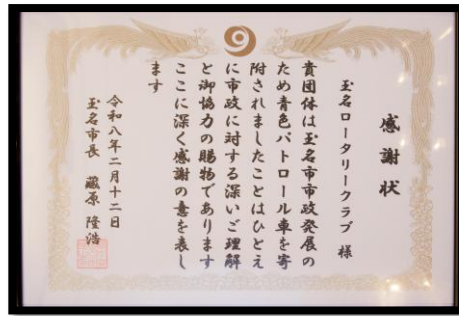 感謝状
玉名ロータリークラブ 様
貴団体は玉名市市政発展の
ため青色パトロール車を寄
附されましたことはひとえ
に市政に対する深いご理解
と御協力の賜物であります
ここに深く感謝の意を表し
ます
令和八年二月十二日
玉名市長 藏原 隆浩